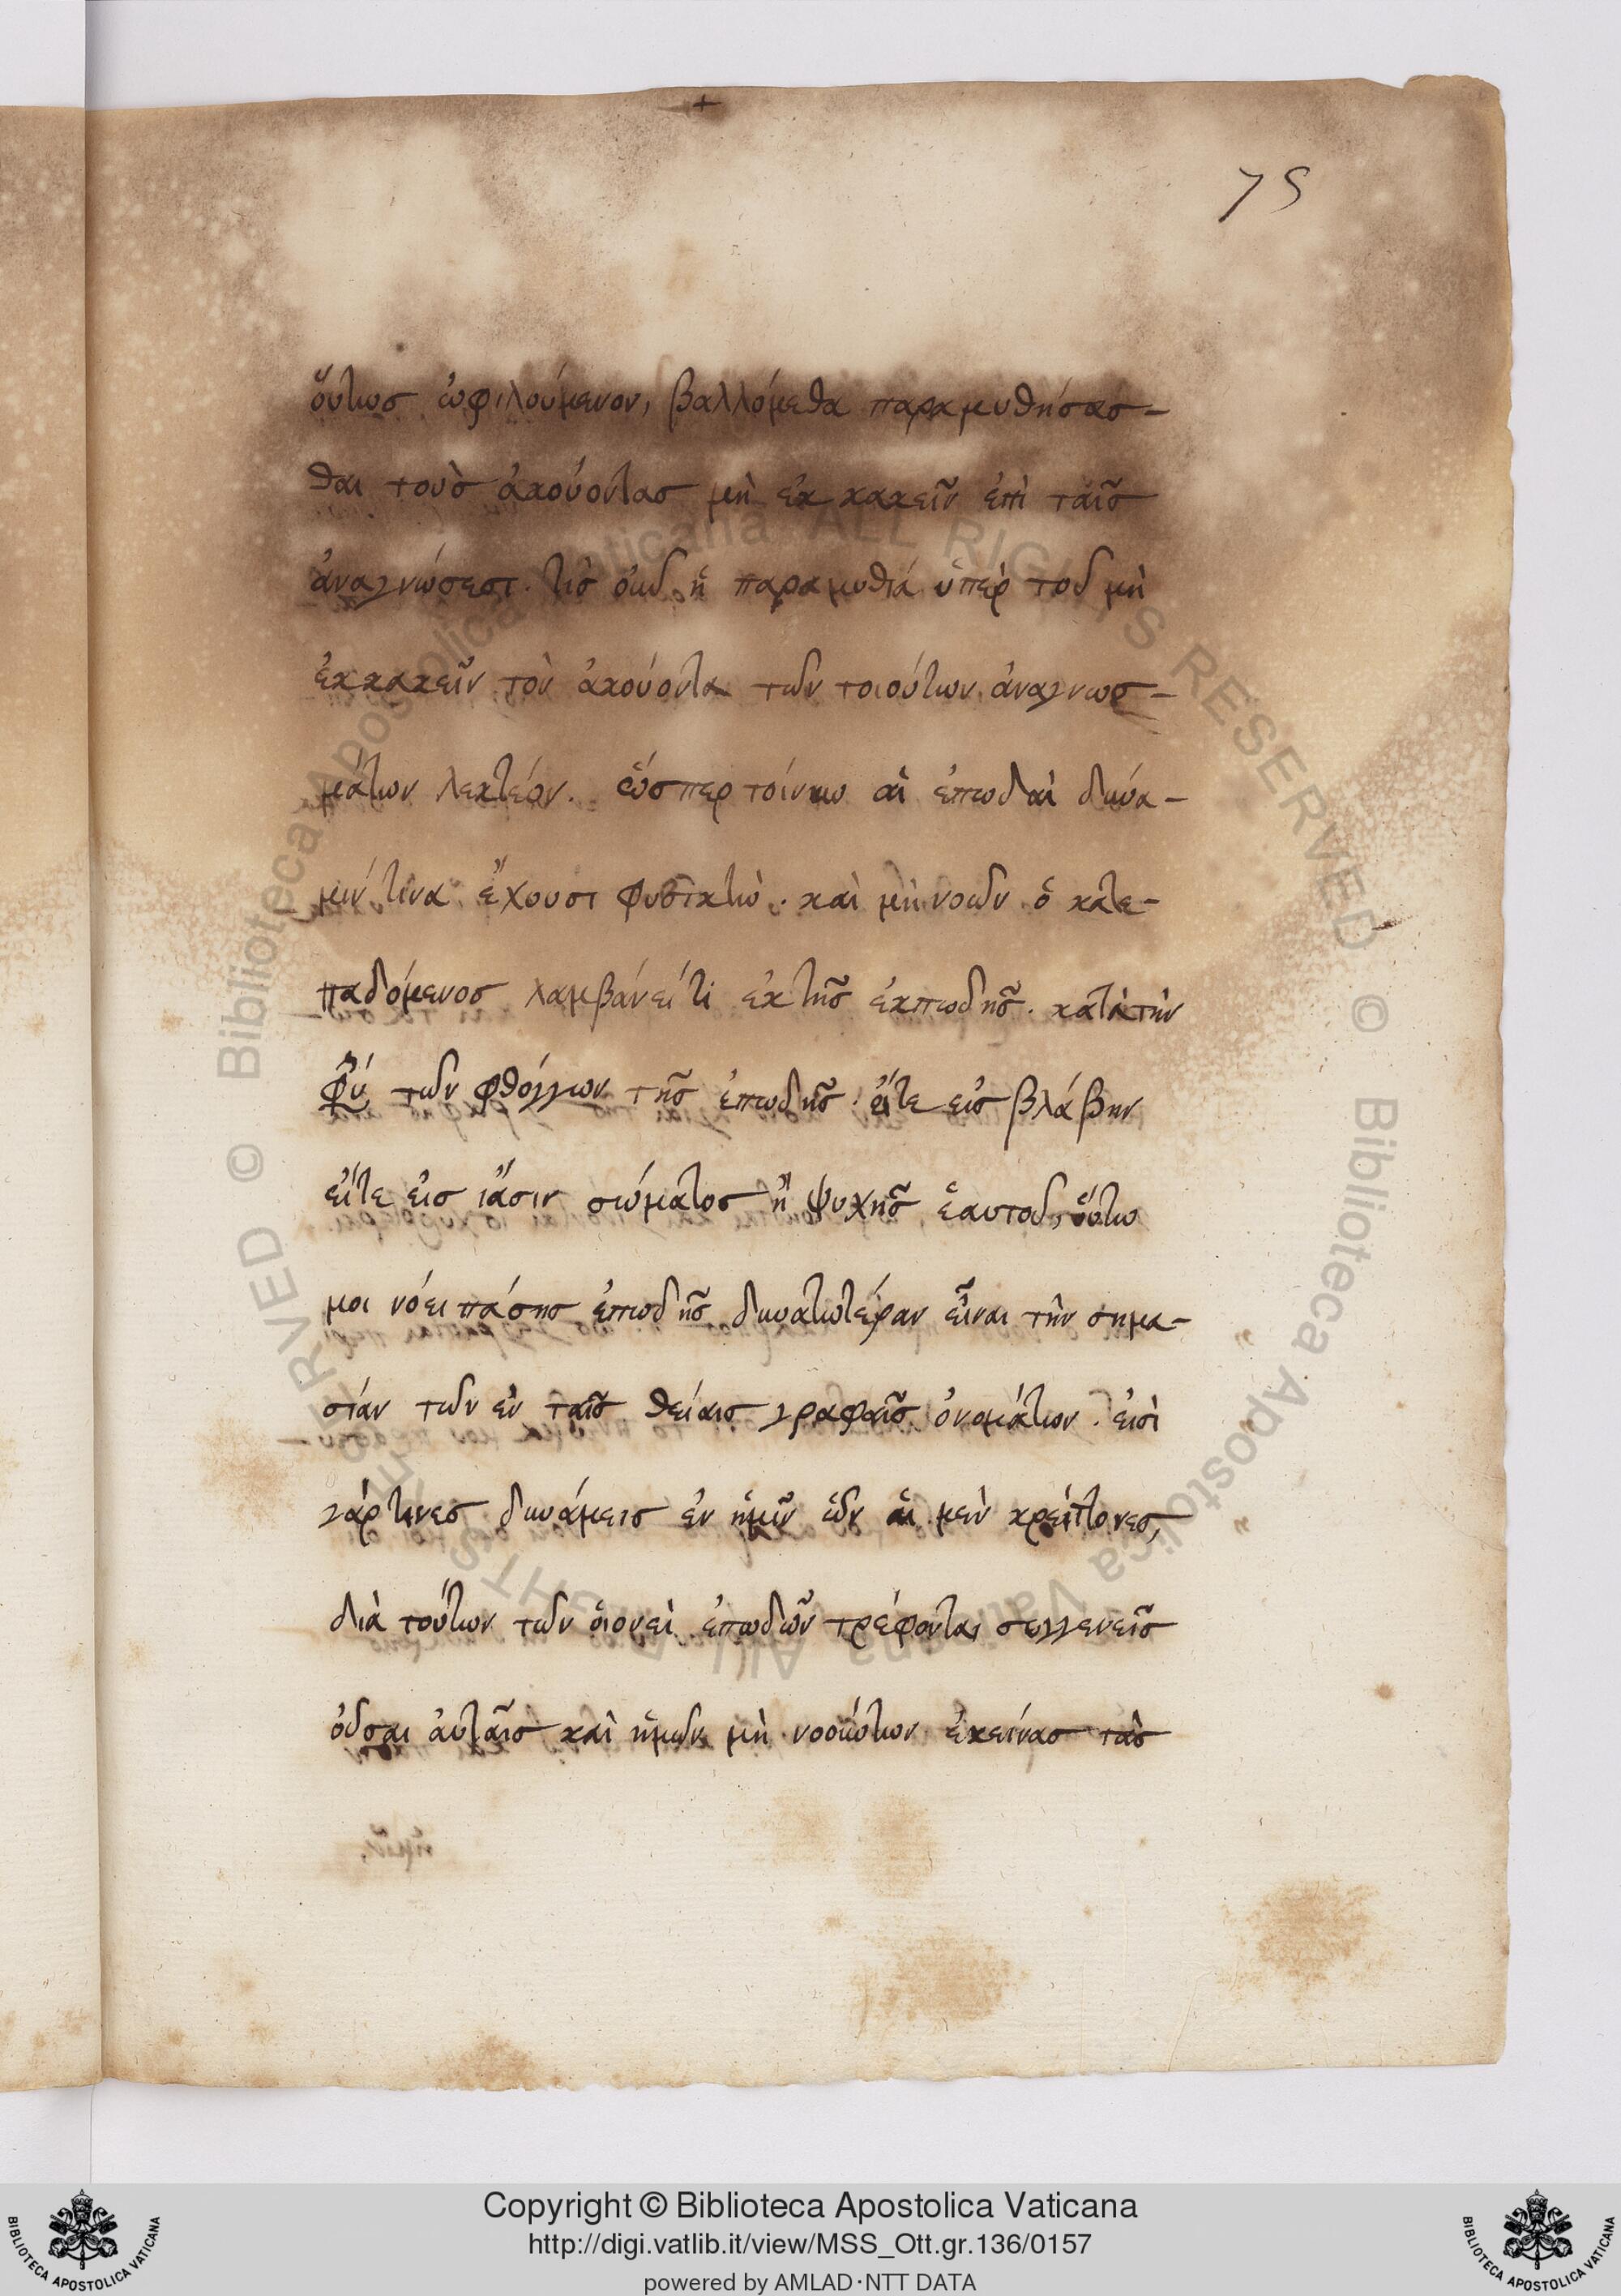 75
ὅύτωσ ὠφιλούμενον, βαλλόμεθα παραμυθήσασ-
θαι τουσ ἀκούοντασ μὴ ἐκ κακεῖν ἐπὶ ταῖσ
ἀναγνώσεσι. τίσ οὖν ἡ παραμυθιά ὑπὲρ τοῦ μὴ
ἐκκακεῖν τὸν ἀκούοντα τῶν τοιούτων ἀναγνωσ-
μάτων λεκτέον. ὥσπερ τοίνυν αἱ ἐπωδαὶ δυνά-
μιν τινα ἔχουσι φυσικὴν. καὶ μὴ νοῶν ὁ κατε-
παδόμενοσ λαμβάνει τι ἐκ τῆσ ἐκπωδῆσ. κατὰ τὴν
φύ τῶν φθόγγων τῆσ ἐπωδῆσ. εἴτε εἰσ βλάβην
εἴτε εἰσ ἴασιν σώματοσ ἢ ψυχῆσ ἑαυτοῦ, οὕτω
μοι νόει πάσησ ἐπωδῆσ δυνατωτέραν εἶναι τὴν σημα-
σίαν τῶν ἐν ταῖσ θείαισ γραφαῖσ ὀνομάτων. εἰσὶ
γάρ τινεσ δυνάμεισ ἐν ἡμῖν ὧν αἱ μὲν κρείττονεσ,
διὰ τούτων τῶν οἱονεὶ ἐπωδῶν τρέφονται συγγενεῖσ
οὖσαι αὐταῖσ καὶ ἡμῶν μὴ νοούντων ἐκείνασ τὰσ
Copyright © Biblioteca Apostolica Vaticana
http://digi.vatlib.it/view/MSS_Ott.gr.136/0157
powered by AMLAD·NTT DATA
BIBLIOTECA APOSTOLICA VATICANA
BIBLIOTECA APOSTOLICA VATICANA
© Biblioteca Apostolica Vaticana ALL RIGHTS RESERVED
© Biblioteca Apostolica Vaticana ALL RIGHTS RESERVED